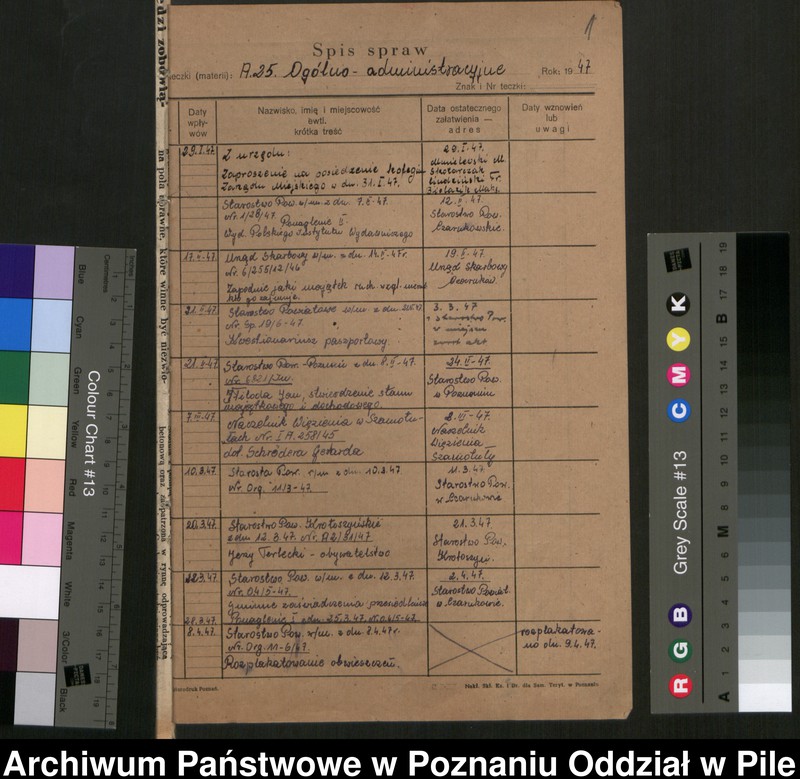 1
Spis spraw
teczki (materii): A.25. Ogólno-administracyjne Rok: 1947
Znak i Nr teczki:
Daty wpływów
Nazwisko, imię i miejscowość ewtl. krótka treść
Data ostatecznego załatwienia — adres
Daty wznowień lub uwagi
29.I.47.
Z urzędu:
Zaproszenie na posiedzenie Kolegium
Zarządu Miejskiego w dn. 31.I.47.
29.I-47.
Starostwo Pow. w/m. z dn. 7.II-47.
Nr. 1/28/47 Ponaglenie II
Wyd. Polskiego Instytutu Wydawniczego
12.II.47.
Starostwo Pow.
Czarnkowskie.
17.II-47.
Urząd Skarbowy w/m. z dn. 14.II-47r.
Nr. 6/255/12/46
19.II-47.
Urząd Skarbowy
Czarnków.
21.II-47
Starostwo Powiatowe w/m. z dn.
Nr. Sp. 19/6-47
Kwestionariusz paszportowy.
3.3.47
zwrot akt
Starostwo Pow. Poznań z dn.
stwierdzenie stanu
majątkowego i dochodowego.
24.II-47.
Starostwo Pow.
w Poznaniu
7.III-47.
Naczelnik Więzienia w Szamotu-
łach Nr. I A.258/45
dot. Schrödera Gerarda
Naczelnik
Więzienia
Szamotuły
10.3.47.
Starosta Pow. w/m z dn. 10.3.47.
Nr. Org. 11/3-47.
11.3.47.
Starostwo Pow.
w Czarnkowie
20.3.47.
Starostwo Pow. Krotoszyńskie
z dn. 12.3.47. Nr. A2/91/47
Jerzy Terlecki - obywatelstwo
21.3.47.
Starostwo Pow.
Krotoszyn.
12.3.47.
Starostwo Pow. w/m. z dn. 12.3.47.
Nr. O4/5-47.
Gminne zaświadczenia przesiedleńcze
2.4.47.
Starostwo Powiat.
w Czarnkowie.
28.3.47.
Ponaglenie I z dn. 25.3.47. Nr. O.4/5-47.
8.4.47.
Starostwo Pow. w/m. z dn. 8.4.47r.
Nr. Org. 11-6/47.
Rozplakatowanie obwieszczeń.
rozplakatowa-
no dn. 9.4.47.
Nakł. Skł. Ks. i Dr. dla Sam. Teryt. w Poznaniu
edzi zobowią-
na pola uprawne, które winne być niezwło-
betonową oraz zaopatrzona w rynnę odprowadzającą
Colour Chart #13
Blue
Cyan
Green
Yellow
Red
Magenta
White
3/Color
Black
Centimetres
Inches
Grey Scale #13
R G B
C M Y K
A 1 2 3 4 5 6 M 8 9 10 11 12 13 14 15 B 17 18 19
Archiwum Państwowe w Poznaniu Oddział w Pile